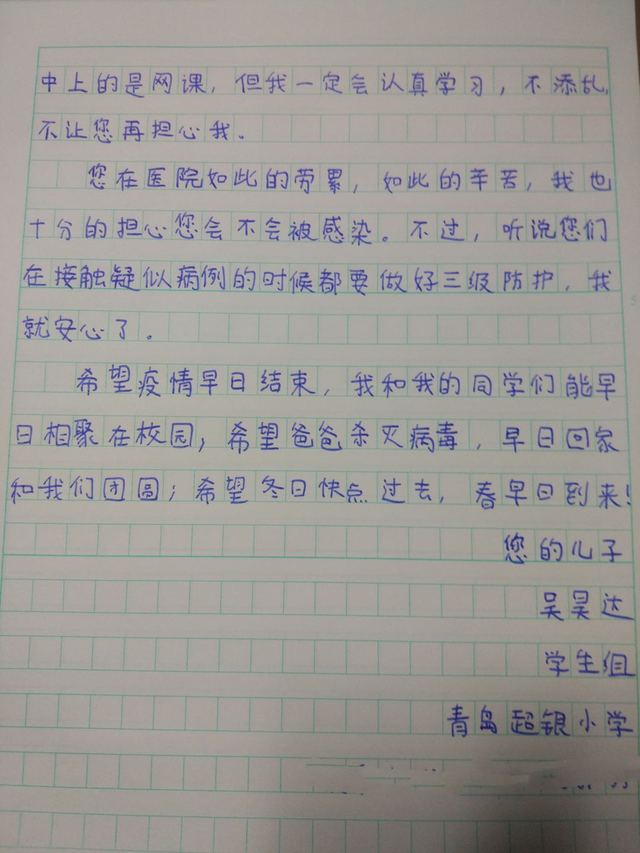 中上的是网课，但我一定会认真学习，不添乱，
不让您再担心我。
您在医院如此的劳累，如此的辛苦，我也
十分的担心您会不会被感染。不过，听说您们
在接触疑似病例的时候都要做好三级防护，我
就安心了。
希望疫情早日结束，我和我的同学们能早
日相聚在校园；希望爸爸杀灭病毒，早日回家
和我们团圆；希望冬日快点过去，春早日到来！
您的儿子
吴昊达
学生组
青岛超银小学